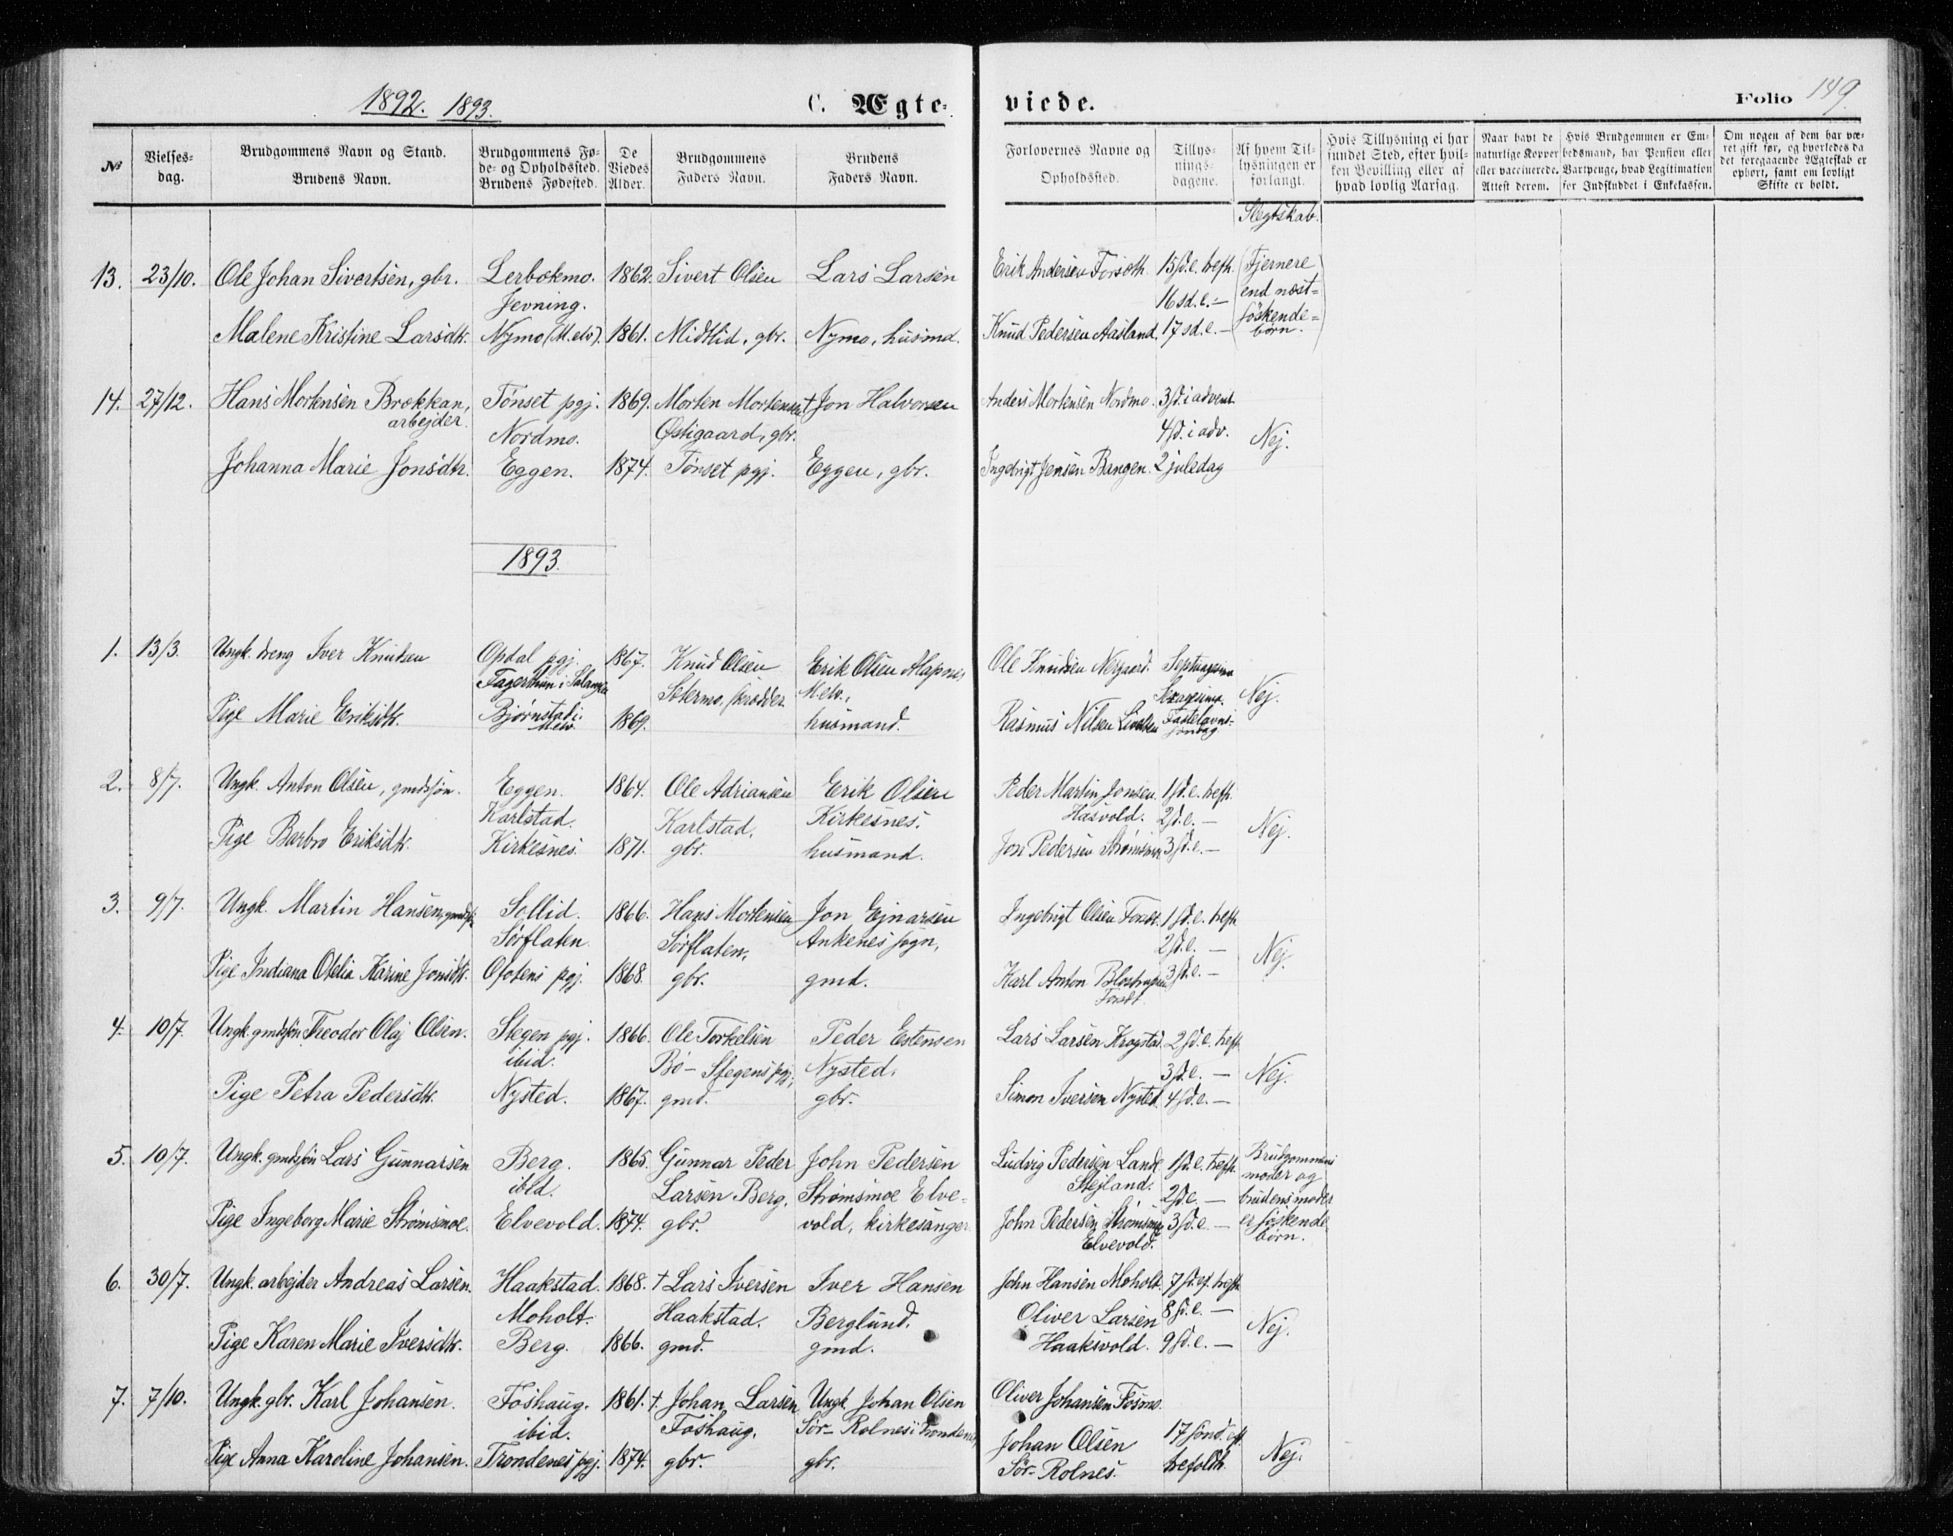 1892. 1893.
C. Ægte-
viede.
Folio 149.
No
Vielses-
dag.
Brudgommens Navn og Stand.
Brudens Navn.
Brudgommens Fø-
de- og Opholdssted.
Brudens Fødested.
De
Viedes
Alder.
Brudgommens
Faders Navn.
Brudens
Faders Navn.
Forlovernes Navne og
Opholdssted.
Tillys-
nings-
dagene.
Af hvem Til-
lysningen er
forlangt.
Hvis Tillysning ei har
fundet Sted, efter hvil-
ken Bevilling eller af
hvad lovlig Aarsag.
Naar havt de
naturlige Kopper
eller vaccinerede.
Attest derom.
Hvis Brudgommen er Em-
bedsmand, har Pension eller
Vartpenge, hvad Legitimation
for Indskuddet i Enkekassen.
Om nogen af dem har væ-
ret gift før, og hvorledes da
det foregaaende Ægteskab er
ophørt, samt om lovligt
Skifte er holdt.
Slegtskab.
13. 23/10. Ole Johan Sivertsen, gbr. Lerbekmo. 1862. Sivert Olsen Lars Larsen Erik Andersen Forseth. 15 sd. e. trefh. (Fjernere
Jevning. 16 sd. e. — end næst=
Malene Kristine Larsdtr. Nymo (M.elv). 1861. Midtlid, gbr. Nymo, husmd. Knud Pedersen Aasland. 17 sd. e. — søskende=
børn.)
14. 27/12. Hans Mortensen Brækkan, Tønset pgj. 1869. Morten Mortensen † Jon Halvorsen Anders Mortensen Nordmo. 3 sd. i advent
arbejder. Nordmo. Østigaard, gbr. 4 sd. i adv. Nej.
Johanna Marie Jonsdtr. Eggen. 1874. Tønset pgj. Eggen, gbr. Ingebrigt Jensen Bangen. 2 juledag
1893.
1. 13/3. Ungk. dreng Iver Knutsen Opdal pgj. 1867. Knud Olsen Erik Olsen Alapnes Ole Knudsen Nergaard. Septuagesima
Fagerthun i Salangen Setermo, skrædder. Melv., Sexagesima. Nej.
Pige Marie Eriksdtr. Bjørnstad i 1869. husmand. Rasmus Nilsen Fastelavns-
Melv. søndag
2. 8/7. Ungk. Anton Olsen, gmdssøn. Eggen. 1864. Ole Adriansen Erik Olsen Peder Martin Jonsen 1 sd. e. trefh.
Karlstad. Karlstad. Kirkesnes. Hasvold. 2 sd. e. — Nej.
Pige Barbro Eriksdtr. Kirkesnes. 1871. gbr. husmand. Jon Pedersen Strømsmoe 3 sd. e. —
3. 9/7. Ungk. Martin Hansen, gmdss. Sollid. 1866. Hans Mortensen Jon Ejnarsen Ingebrigt Olsen Fosdt. 1 sd. e. trefh.
Sørflaten. Sørflaten, Ankenes sogn, 2 sd. e. — Nej.
Pige Indiana Otelia Karine Jonsdtr. Ofotens pgj. 1868. gbr. gmd. Karl Anton 3 sd. e. —
4. 10/7. Ungk. gmdssøn Theodor Olaj Olsen. Stegen pgj. 1866. Ole Torkelsen Peder Estensen Lars Larsen Krogstad. 2 sd. e. trefh.
ibid. Bö – Stegens pgj, Nysted. 3 sd. e. — Nej.
Pige Petra Pedersdtr. Nysted. 1867. gmd. gbr. Simon Iversen Nysted. 4 sd. e. —
5. 10/7. Ungk. gmdssøn Lars Gunnarsen Berg. 1865. Gunnar Peder John Pedersen Ludvig Pedersen Lande 1 sd. e. trefh. Brudgommens
ibid. Larsen Berg, Strømsmoe Elve- Stejland. 2 sd. e. — moder og
brudens moder
Pige Ingeborg Marie Strømsmoe. Elvevold. 1874. gbr. vold, kirkesanger John Pedersen Strømsmoe 3 sd. e. — er søskende
Elvevold. børn.
6. 30/7. Ungk. arbejder Andreas Larsen. Haakstad. 1868. † Lars Iversen Iver Hansen John Hansen Moholt. 7 sd. ef. trefh.
Moholt. Haakstad. Berglund. Oliver Larsen 8 sd. e. — Nej.
Pige Karen Marie Iversdtr. Berg. 1866. gmd. gmd. Haaksvold. 9 sd. e. —
7. 7/10. Ungk. gbr. Karl Johansen. Foshaug. 1861. † Johan Larsen Ungk. Johan Olsen Oliver Johansen Fosmo.
ibid. Foshaug. Sør-Rolnes i Trondenes, Johan Olsen 17 sönd. eft.
Pige Anna Karoline Johansen. Trondenes pgj. 1874. gbr. gbr. Sør-Rolnes. trefoldh. Nej.